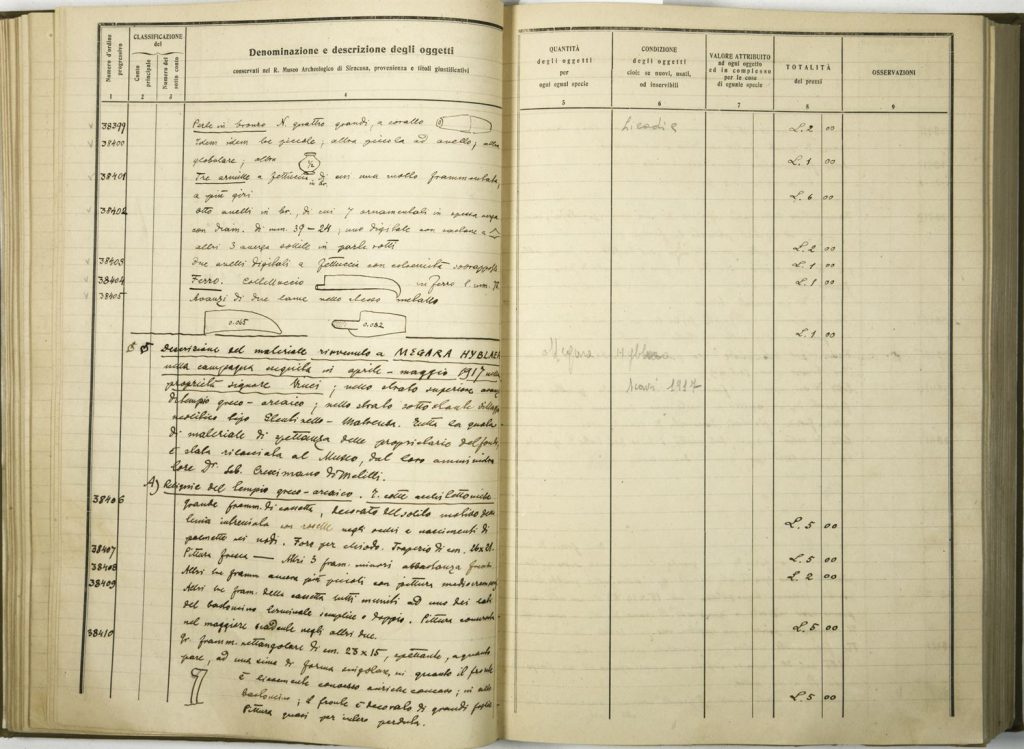 Numero d'ordine progressivo
CLASSIFICAZIONE del
Conto principale
Numero del sotto conto
Denominazione e descrizione degli oggetti
conservati nel R. Museo Archeologico di Siracusa, provenienza e titoli giustificativi
1 2 3 4
38399 Perle in bronzo N. quattro grandi, a corallo
38400 Idem idem tre piccole; altra piccola ad anello; altra
globulare; altra ½
38401 Tre armille a fettuccia in br. di cm. una molto frammentata,
a più giri
38402 Otto anelli in br., di cui 7 ornamentali in spessa verga
con diam. di mm. 39 – 24; uno digitale con castone a
altri 3 a verga sottile in parte rotti
38403 due anelli digitali a fettuccia con estremità sovrapposte
38404 Ferro. Coltelluccio in ferro l. mm.
38405 Avanzi di due lame nello stesso metallo
0.065 0.082
§ § Descrizione del materiale rinvenuto a MEGARA HYBLAEA
nella campagna eseguita in aprile – maggio 1917 nella
proprietà signore Vinci; nello strato superiore avanzi
di tempio greco – arcaico; nello strato sottostante villaggio
neolitico tipo Stentinello – Matrensa. Tutta la quota
di materiale di spettanza delle proprietarie del fondo,
è stata rilasciata al Museo, dal loro amministra
tore Dr. Seb. Crescimano di Melilli.
A) Reliquie del tempio greco – arcaico. T. cotte architettoniche
38406 Grande framm. di cassetta, decorato del solito motivo della
tenia intrecciata con rosette negli occhi e nascimenti di
palmette nei nodi. Foro per chiodo. Trapezio di cm. 26 x 21.
38407 Pittura fresca — Altri 3 fram. minori abbastanza freschi
38408 Altri tre framm. ancora più piccoli con pittura mediocre
38409 Altri tre fram. della cassetta tutti muniti ad uno dei lati
del bastoncino terminale semplice o doppio. Pittura conservata
nel maggiore scadente negli altri due.
38410 Gr. framm. rettangolare di cm. 23 x 15, spettante, a quanto
pare, ad una sima di forma singolare, in quanto il fronte
è lievemente convesso anziché concavo; in alto
bastoncino; il fronte è decorato di grandi foglie
Pittura quasi per intero perduta.
QUANTITÀ degli oggetti per ogni eguale specie
CONDIZIONE degli oggetti cioè: se nuovi, usati, od inservibili
VALORE ATTRIBUITO ad ogni oggetto ed in complesso per le cose di eguale specie
TOTALITÀ dei prezzi
OSSERVAZIONI
5 6 7 8 9
Licodia
L. 2 00
L. 1 00
L. 6 00
L. 2 00
L. 1 00
L. 1 00
L. 1 00
Megara Hyblaea
scavi 1917
L. 5 00
L. 5 00
L. 2 00
L. 5 00
L. 5 00